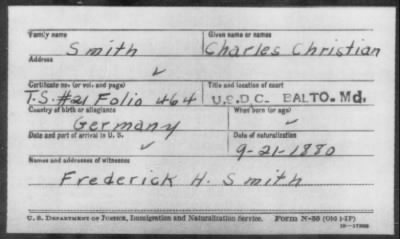 Family name Given name or names
Smith Charles Christian
Address
✓
Certificate no. (or vol. and page) Title and location of court
T.S. #21 Folio 464 U.S.D.C. BALTO. Md.
Country of birth or allegiance When born (or age)
Germany ✓
Date and port of arrival in U. S. Date of naturalization
✓ 9-21-1880
Names and addresses of witnesses
Frederick H. Smith
U. S. Department of Justice, Immigration and Naturalization Service. Form N-585 (Old 1-IP)